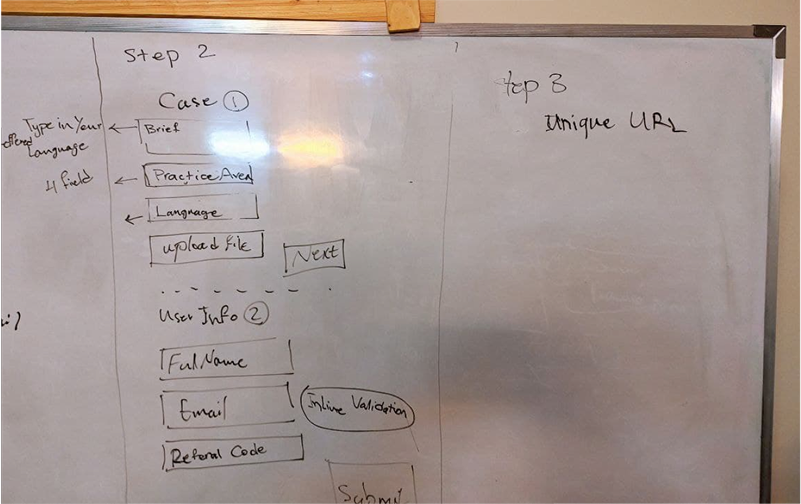 Step 2
Case 1
Type in Your
Language
Brief
4 field
Practice Area
Language
Upload File
Next
User Info 2
Full Name
Email
Inline Validation
Referal Code
Submit
Step 3
Unique URL